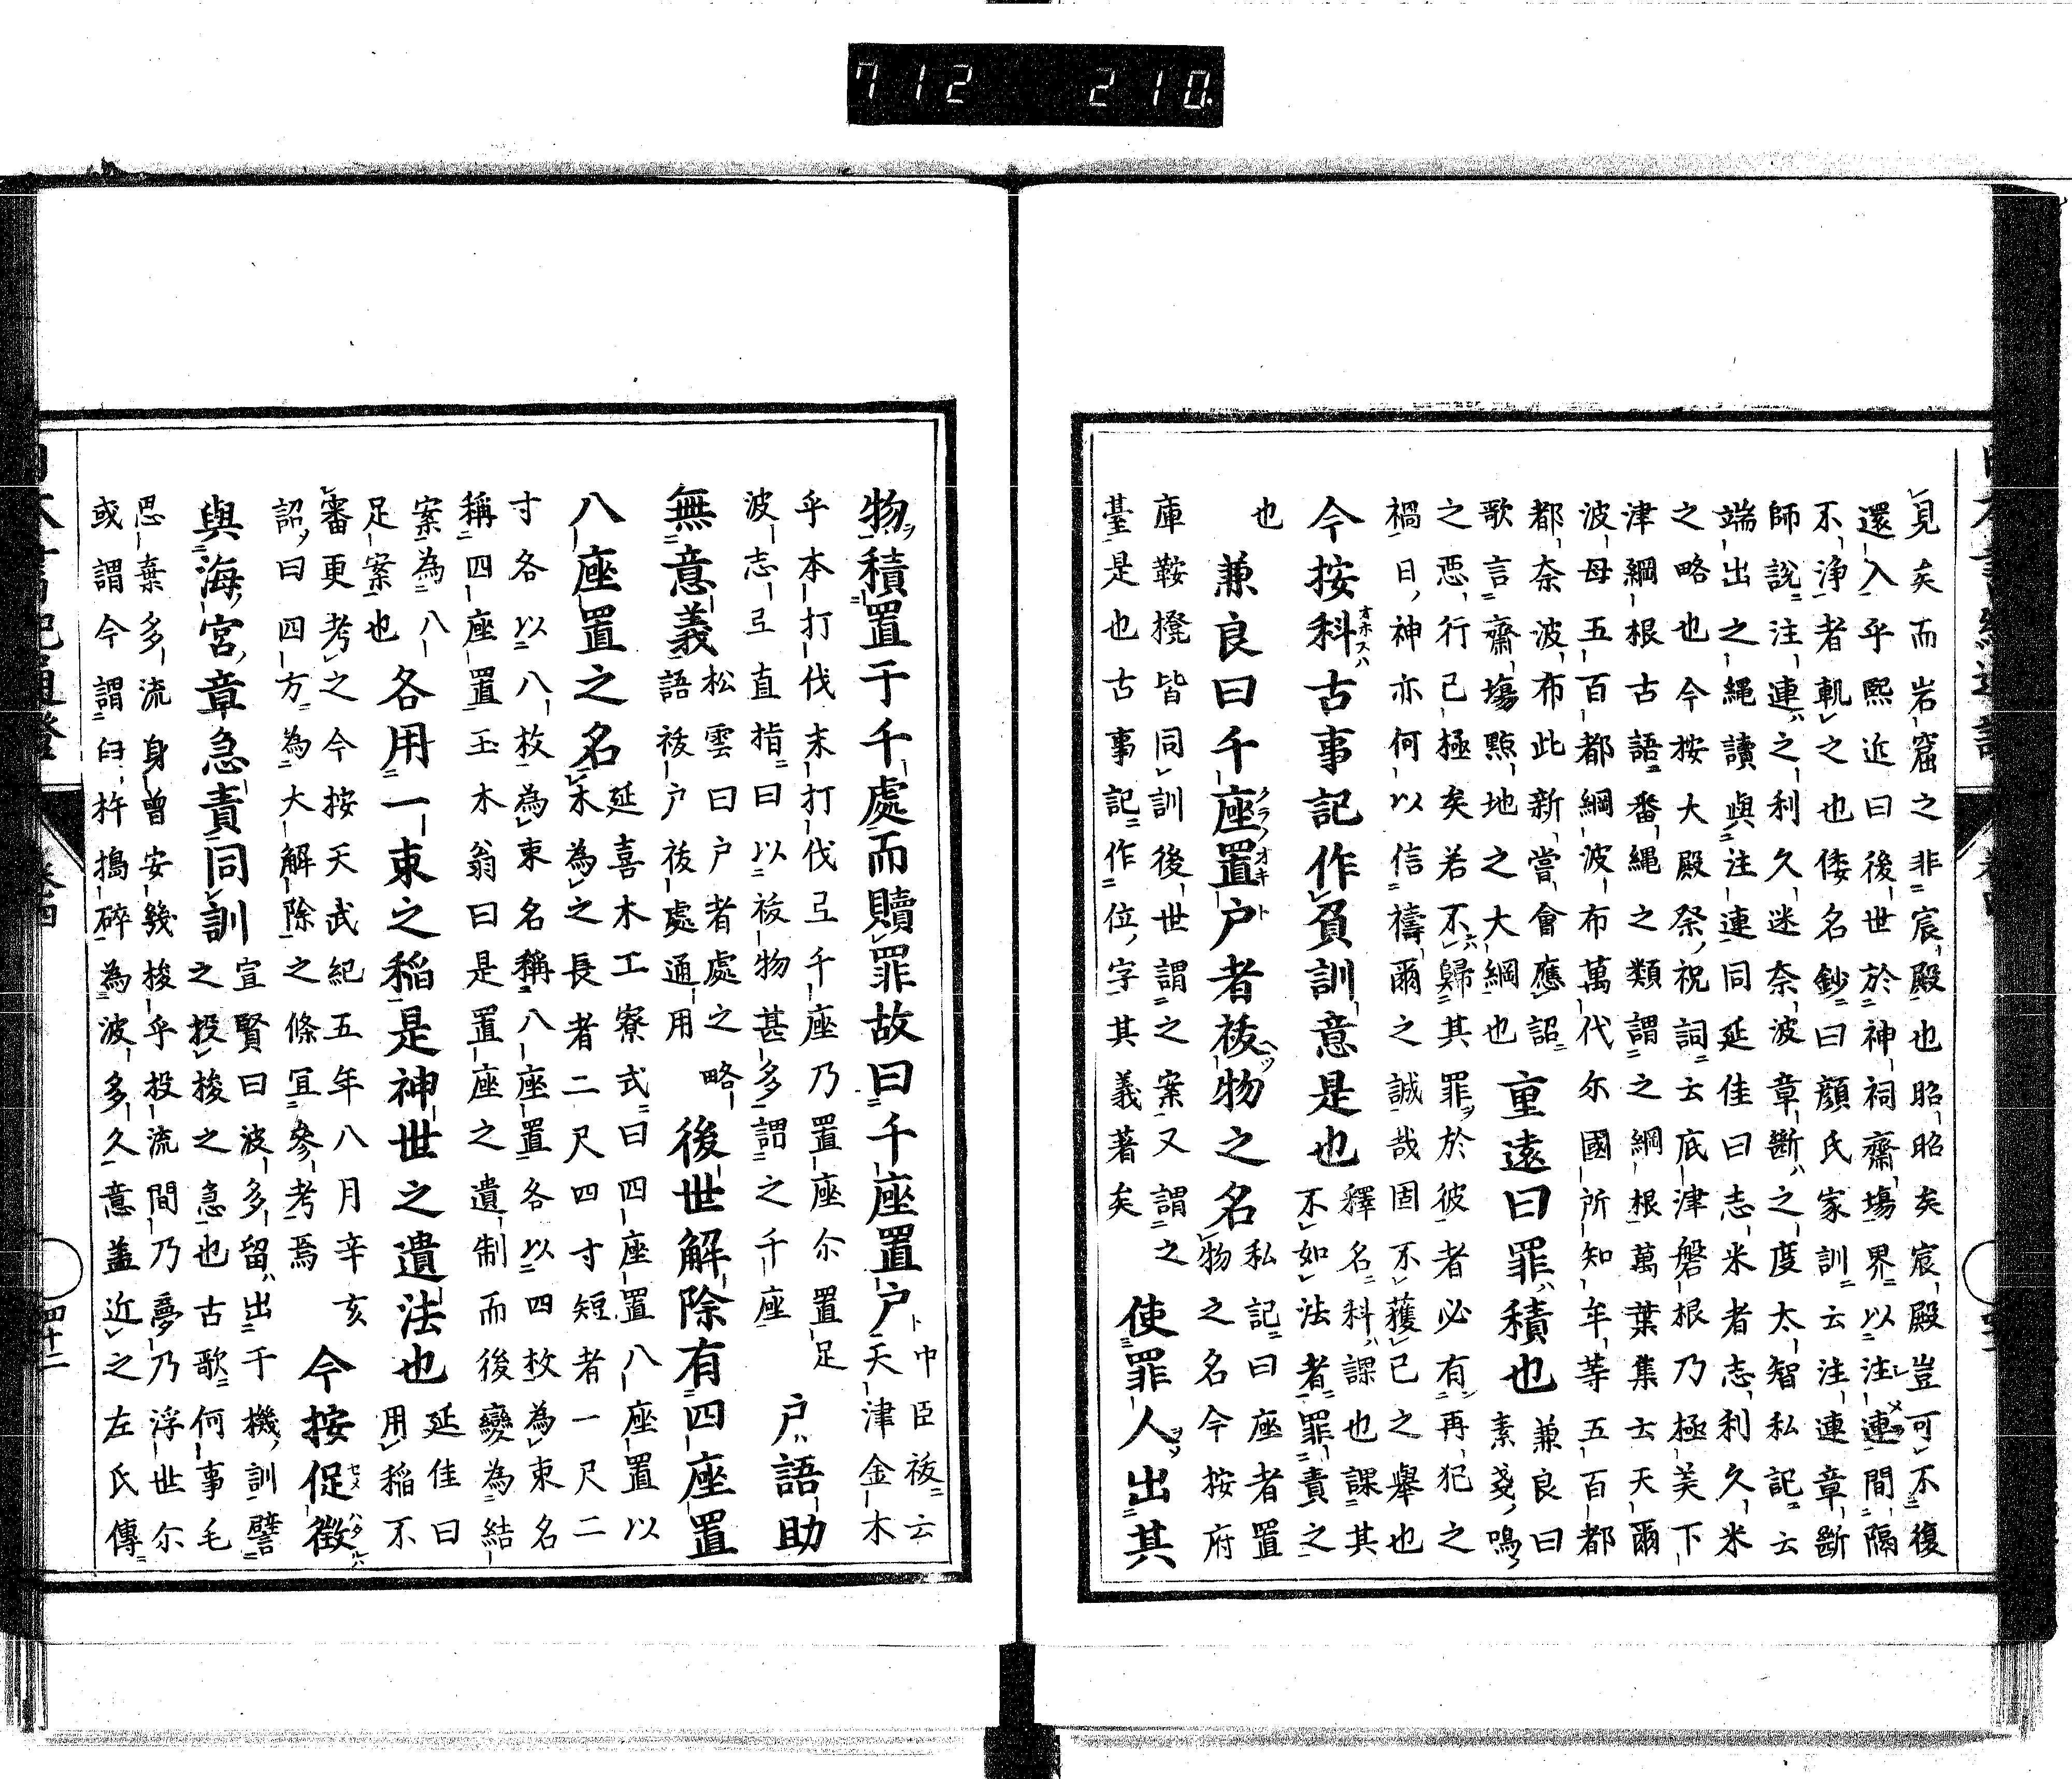 712 210
見矣而岩窟之非宸殿也昭昭矣宸殿豈可不復
還入乎熙近曰後世於神祠齋場界以注連間隔
不浄者軌之也倭名鈔曰顔氏家訓云注連章斷
師說注連之利久迷奈波章斷之度太智私記云
端出之繩讀與注連同延佳曰志米者志利久米
之略也今按大殿祭祝詞云底津磐根乃極美下
津綱根古語番繩之類謂之綱根萬葉集士天爾
波母五百都綱波布萬代尓國所知年等五百都
都奈波布此新嘗會應詔
歌言齋場㸃地之大綱也
重遠曰罪積也
兼良曰
素戔嗚
之悪行已極矣若不歸其罪於彼者必有再犯之
禍日神亦何以信禱爾之誠哉固不獲已之舉也
今按科古事記作負訓意是也
釋名科課也課其
不如法者罪責之
也
兼良曰千座置户者祓物之名
私記曰座者置
物之名今按府
庫鞍櫈皆同訓後世謂之案又謂之
臺是也古事記作位字其義著矣
使罪人出其
物積置于千處而贖罪故曰千座置户
中臣祓云
天津金木
乎本打伐末打伐弖千座乃置座尓置足
波志弖直指曰以祓物甚多謂之千座
户語助
無意義
松雲曰户者處之略
語祓户祓處通用
後世解除有四座置
八座置之名
延喜木工寮式曰四座置八座置以
木為之長者二尺四寸短者一尺二
寸各以八枚為束名稱八座置各以四枚為束名
稱四座置玉木翁曰是置座之遺制而後變為結
案為八
足案也
各用一束之稲是神世之遺法也
延佳曰
用稲不
審更考之今按天武紀五年八月辛亥
詔曰四方為大解除之條冝參考焉
今按促徴
與海宮章急責同訓
宣賢曰波多留出于機訓譬
之投梭之急也古歌何事毛
思棄多流身曾安幾梭乎投流間乃夢乃浮世尓
或謂今謂臼杵搗碎為波多久意盖近之左氏傳
四十二